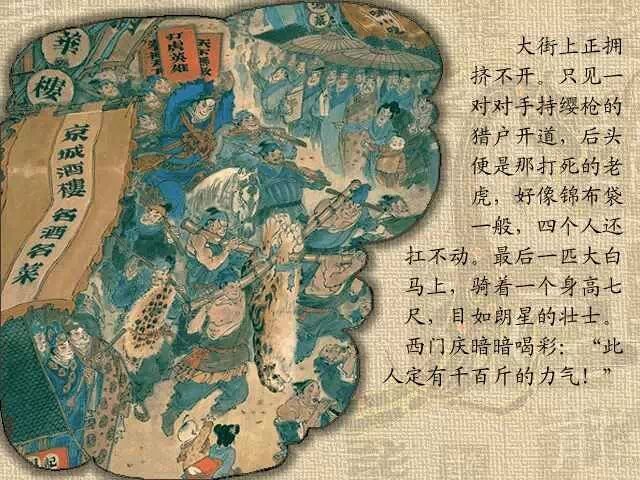 华
楼
打虎英雄
京城酒楼
名酒名菜
大街上正拥
挤不开。只见一
对对手持缨枪的
猎户开道，后头
便是那打死的老
虎，好像锦布袋
一般，四个人还
扛不动。最后一匹大白
马上，骑着一个身高七
尺，目如朗星的壮士。
西门庆暗暗喝彩：“此
人定有千百斤的力气！”